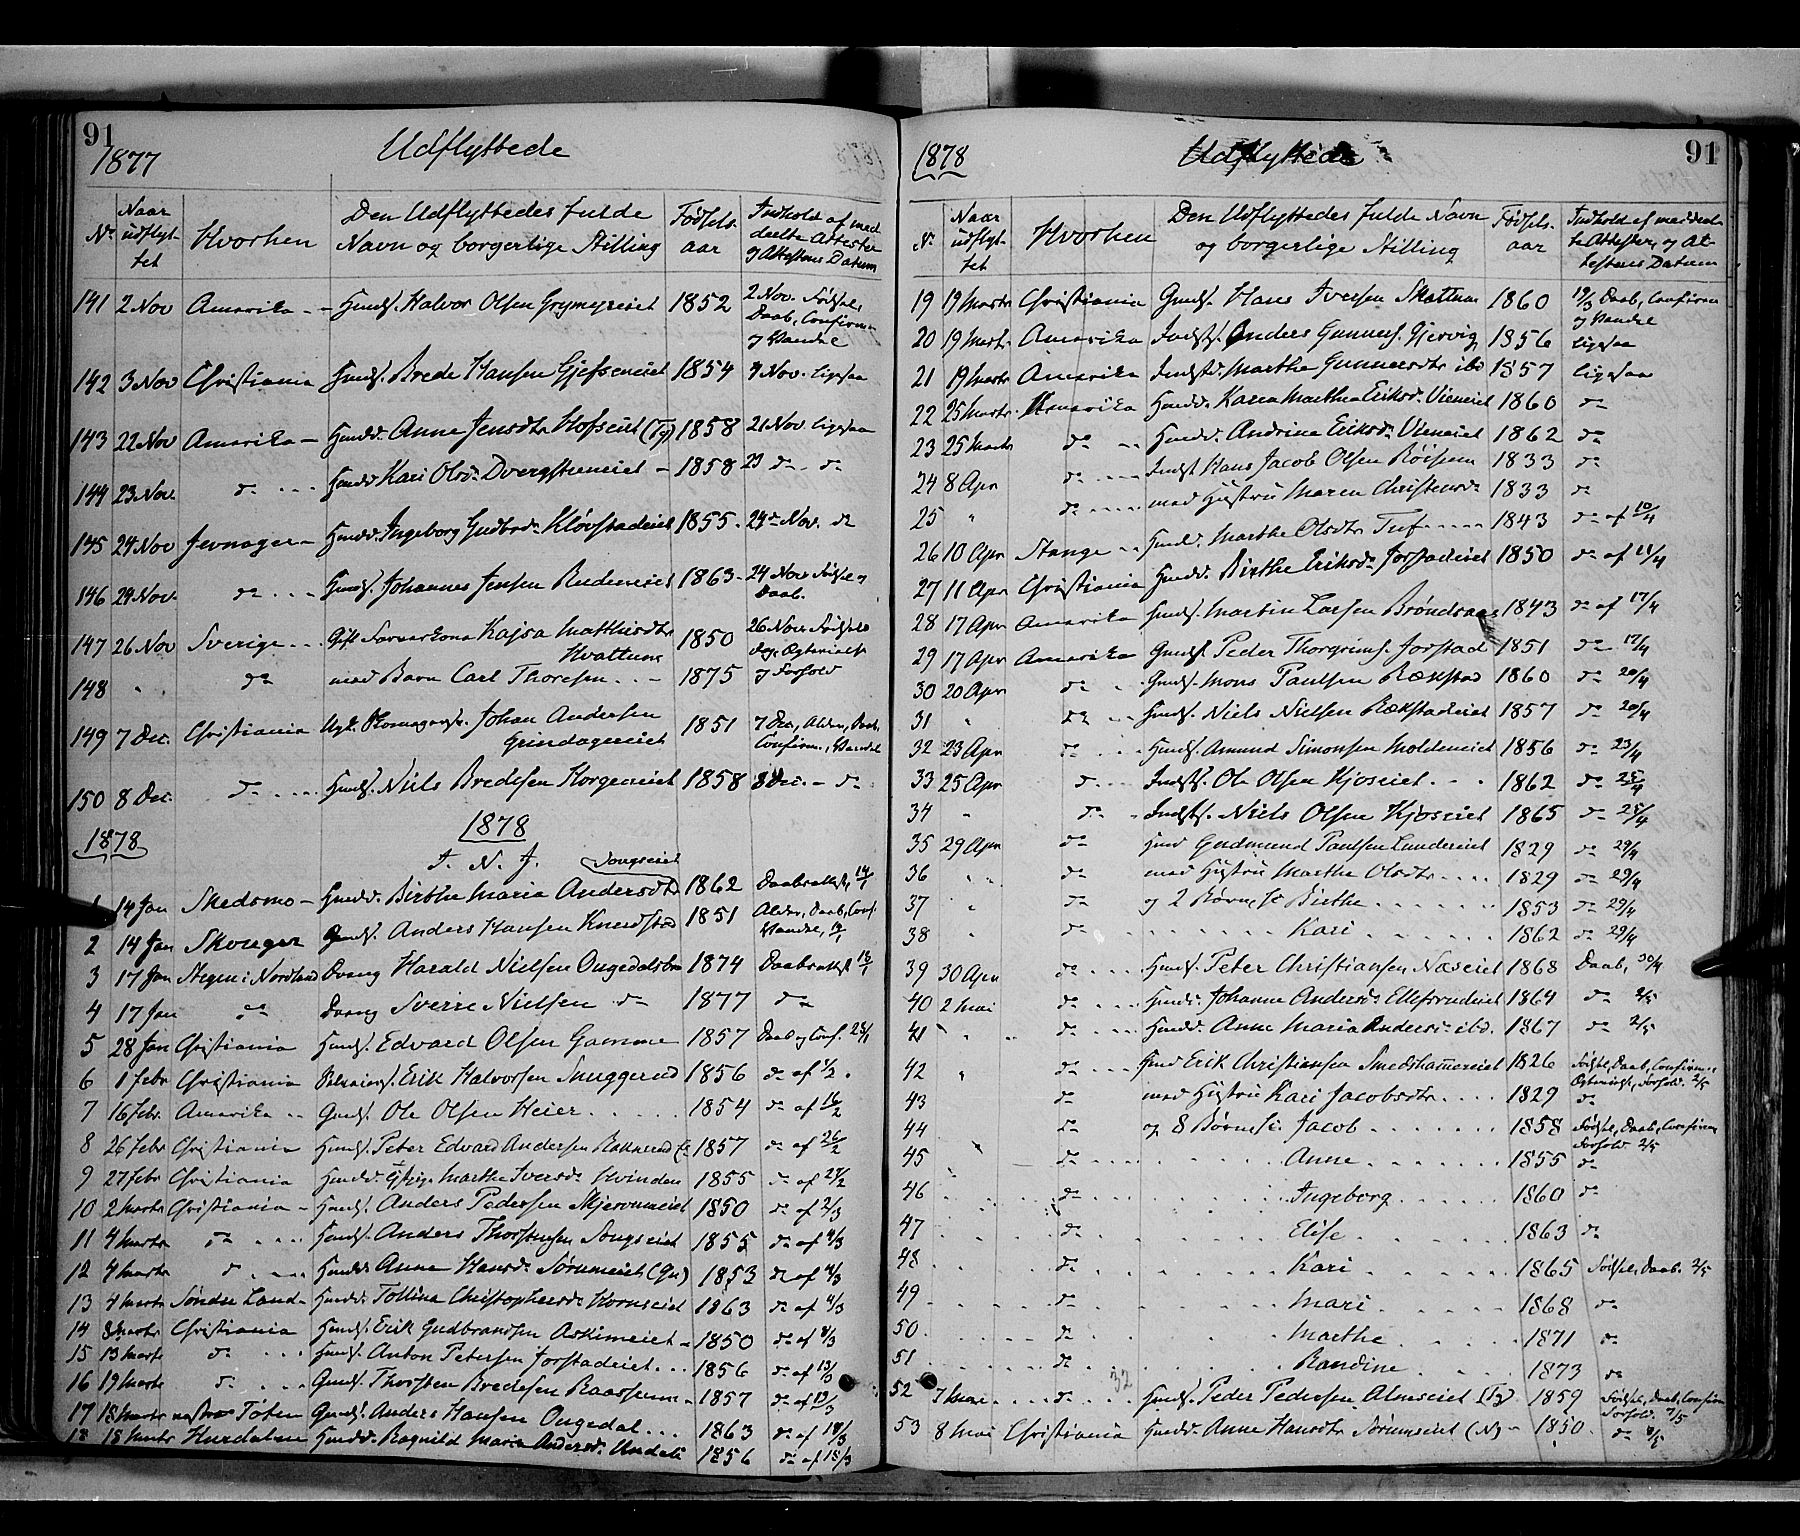 91
1877
Udflyttede
No
Naar udflyttet
Hvorhen
Den Udflyttedes fulde Navn og borgerlige Stilling
Fødselsaar
Indhold af meddeelte Attester og Attestens Datum
141 2 Nov Amerika - Huusf. Halvor Olsen Grymyreiet 1852 2 Nov. Fødsel, Daab, Confirm. og Vandel
142 3 Nov Christiania Huusf. Brede Hansen Gjefseneiet 1854 Nov. ligesaa
143 22 Nov Amerika - Anne Jensdtr Hofseiet 1858 21 Nov. ligesaa
144 23 Nov. do Kari Olsdr 1858 23 do do
145 24 Nov Jevnager - Ingeborg Gudbrdr Kløvstadeiet 1855 24de Nov. do
146 24 Nov. do Johannes Jensen Rudeneiet 1863 24 Nov Fødsel og Daab.
147 26 Nov Sverige Gift Kajsa Matthisdtr Kvattum 1850 26 Nov Fødsel
148 " do med Barn Carl Thoresen 1875 og Forhold
149 7 Dec. Christiania Johan Andersen Grindagereiet 1851 7 Dec, Alder, Daab, Confirm., Vandel
150 8 Dec. do Huusf. Niels Bredesen Horgeneiet 1858 8 Dec. - do
1878
1878
I. N. J.
Songseiet
1 14 Jan Skedsmo - Birthe Maria Andersdtr 1862 Daabsattest, 14/1
2 14 Jan Anders Hansen 1851 Alder, Daab, Conf. Vandel, 14/1
3 17 Jan i Nordland Dreng Harald Nielsen 1874 Daabsattest
4 17 Jan do Dreng Sverre Nielsen do 1877 do
5 28 Jan Christiania Huusf. Edvard Olsen Gamme 1857 Daab og Conf. 28/1
6 1 Febr Christiania Erik Halvorsen Snuggerud 1856 do af 1/2
7 16 Febr. Amerika Gaardf. Ole Olsen Heier 1854 do af 16/2
8 26 Febr Christiania Huusf. Peter Edvard Andersen 1857 do af 26/2
9 27 Febr Christiania Marthe Iversdr Hvinden 1855 do af 27/2
10 2 Marts Christiania - Huusf. Anders Pedersen Skjerveneiet 1850 do af 2/3
11 4 Marts do Huusf. Anders Thorstensen Songseiet 1855 do af 4/3
12 4 Marts do Anne Hansdr Sørumeiet 1853 do af 4/3
13 4 Marts Søndre Land - Christophersdr Hornseiet 1863 do af 4/3
14 8 Marts Christiania Huusf. Erik Gudbrandsen Askimeiet 1850 do af 8/3
15 13 Marts do Huusf. Anton Petersen Jorstadeiet 1856 do af 13/3
16 19 Marts do Thorsten Bredesen 1857 do af
17 18 Marts Toten Anders Hansen 1863 do af 18/3
18 18 Marts Hurdalen Ragnild Maria Andersdr 1856 do af 18/3
1878
Udflyttede
91
No
Naar udflyttet
Hvorhen
Den Udflyttedes fulde Navn og borgerlige Stilling
Fødselsaar
Indhold af meddeelte Attester, og Attestens Datum
19 19 Marts Christiania Hans Iversen Skattum 1860 19/3 Daab, Confirm og Vandel
20 19 Marts Amerika Anders Gunners. Gjervig 1856 ligesaa
21 19 Marts Amerika Marthe Gunnersdtr ibd 1857 ligesaa
22 25 Marts Amerika Karen Marthea Eriksdr Vieneiet 1860 do
23 25 Marts do Andrine Eriksdr Vieneiet 1862 do
24 8 Apr do Hans Jacob Olsen 1833 do
25 " do med Hustru Maren Christensdr 1833 do
26 10 Apr Stange Marthe Olsdtr Tuf 1843 do af 10/4
27 11 Apr Christiania Birthe Eriksdr Jorstadeiet 1850 do af 11/4
28 17 Apr Amerika Huusf. Martin Larsen 1843 do af 17/4
29 17 Apr Amerika Peder Thorgrims. Jorstad 1851 do 17/4
30 20 Apr do Mons Paulsen Rækstad 1860 do 20/4
31 " do Huusf. Niels Nielsen Rækstadeiet 1857 do 20/4
32 23 Apr do Huusf. Amund Simonsen Moldeneiet 1856 do 23/4
33 25 Apr do Ole Olsen Kjoseiet 1862 do 25/4
34 " do Niels Olsen Kjoseiet 1865 do 25/4
35 29 Apr do Gudmund Paulsen Lundereiet 1829 do 29/4
36 " do med Hustru Marthe Olsdtr 1829 do 29/4
37 " do og 2 Børn, Birthe 1853 do 29/4
38 " do Kari 1862 do 29/4
39 30 Apr do Huusf. Peter Christiansen Næseiet 1868 Daab, 30/4
40 2 Mai do Johanne Andersdr Ellefsrudeiet 1864 do 2/5
41 " do Anne Maria Andersdr ibd. 1867 do 2/5
42 " do Erik Christiansen Smedshammereiet 1826 Fødsel, Daab, Confirm. Forhold 2/5
43 do med Hustru Kari Jacobsdtr 1829 do
44 do og 8 Børn: Jacob 1858 Fødsel, Daab, Confirm, Forhold 2/5
45 do Anne 1855 do
46 do Ingeborg 1860 do
47 do Elise 1863 do
48 do Kari 1865 Fødsel, Daab. 2/5
49 do Mari 1868 do
50 do Marthe 1871 do
51 do Randine 1873 do
32
52 7 Mai do Huusf. Peder Pedersen Almseiet 1859 Fødsel, Daab, Confirm, Forhold 7/5
53 8 Mai Christiania Anne Hansdtr Sørumseiet (N) 1850 do 8/5